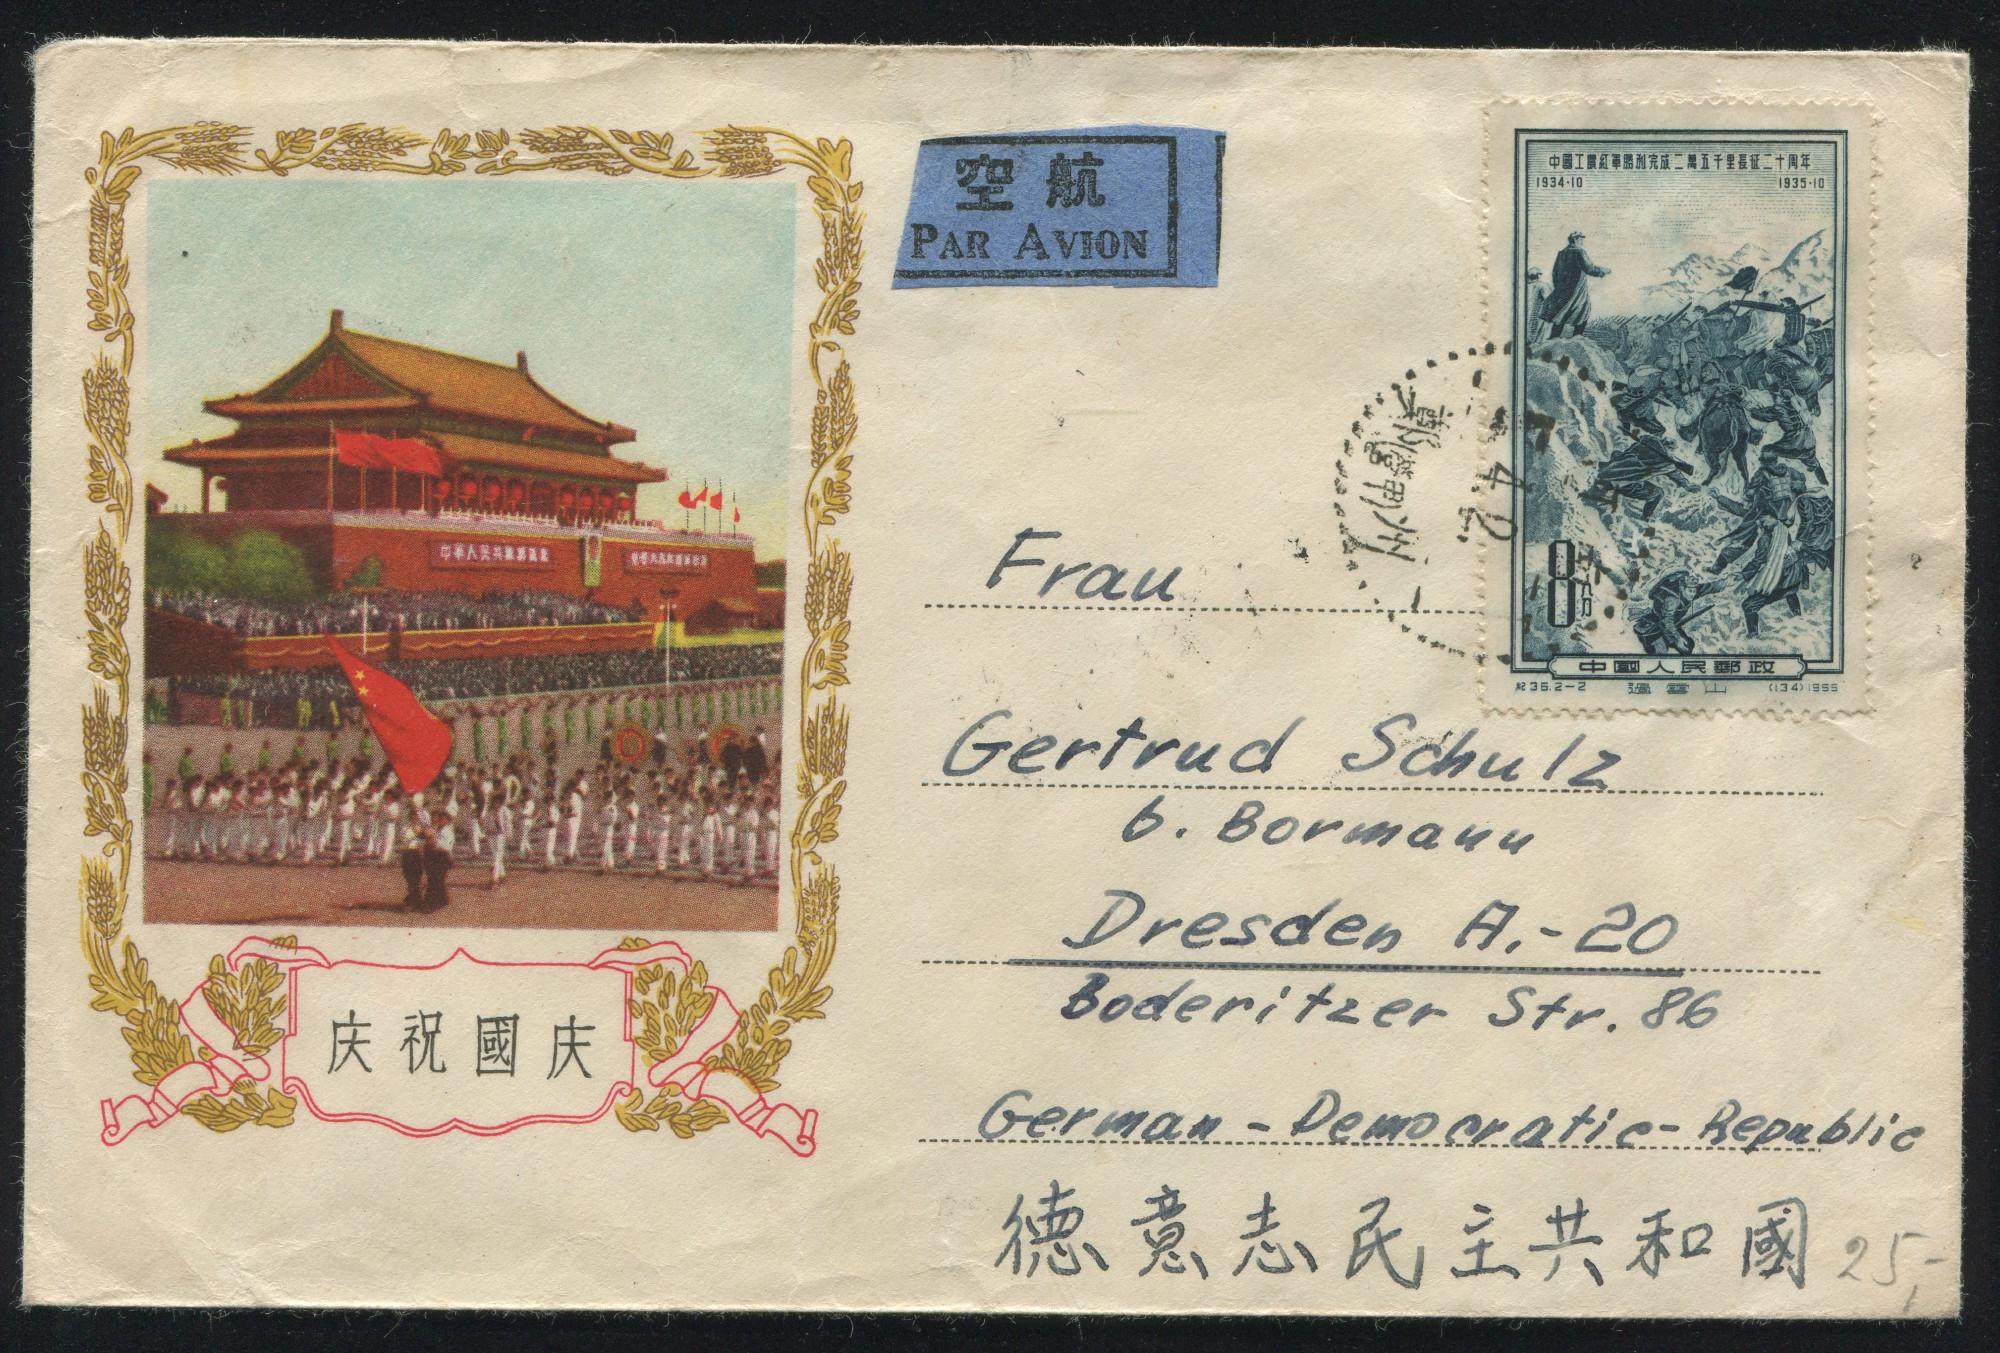 航空
PAR AVION
中國工農紅軍勝利完成二萬五千里長征二十周年
1934·10 1935·10
8分
中國人民郵政
紀36.2-2 過雪山 (134)1955
中華人民共和國萬歲
庆祝國庆
Frau
Gertrud Schulz
b. Bormann
Dresden A.-20
Boderitzer Str. 86
German-Democratic-Republic
德意志民主共和國
25,-